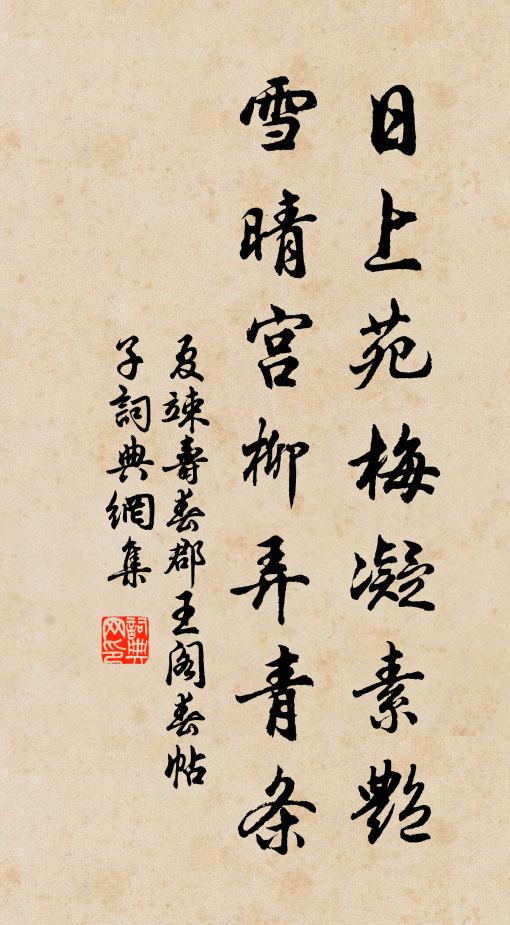 日上苑梅凝素艷
雪晴宫柳弄青条
夏竦壽春郡王閣春帖
子詞典網集
詞典網印